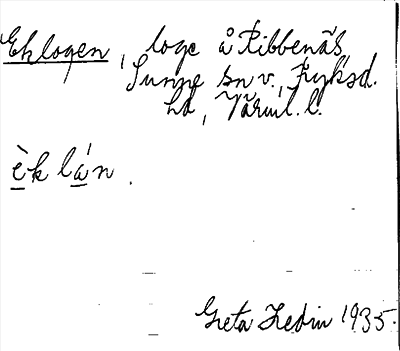 Eklogen, loge å Ribbenäs
Sunne sn v., Fryksd.
hd, Värml. l.
èk lán.
Greta Hedin 1935.